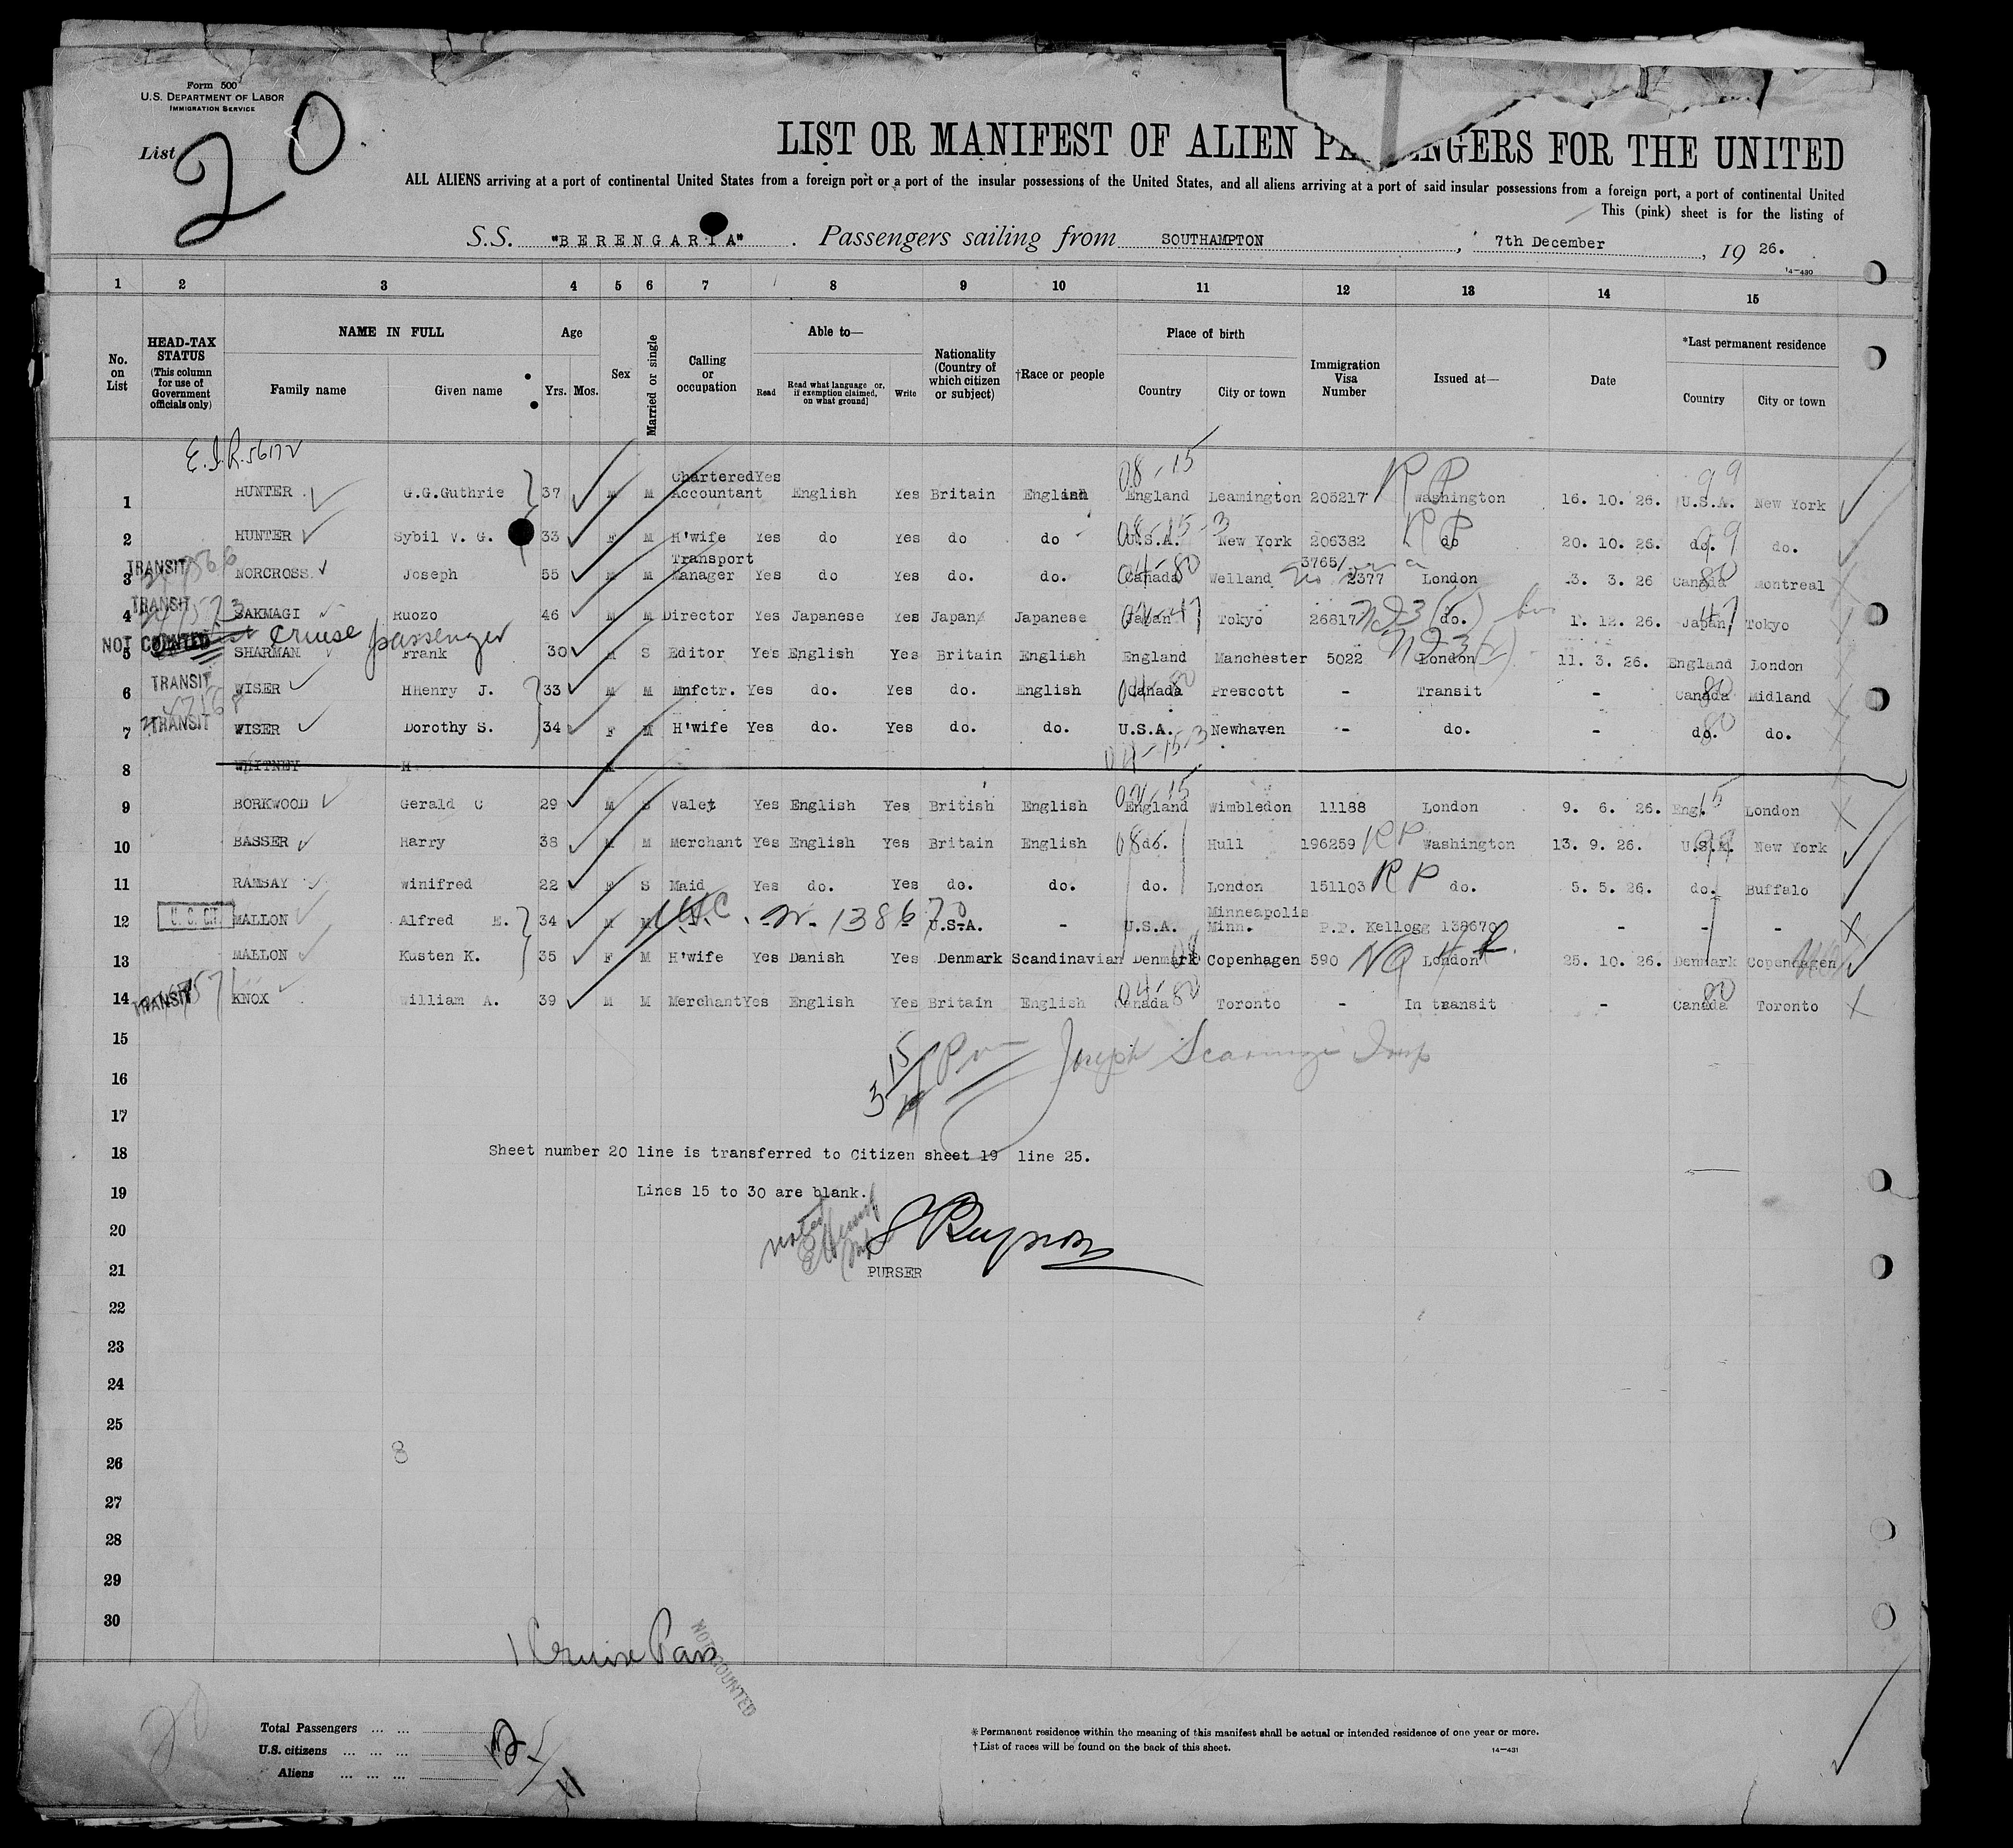 Form 500
U.S. DEPARTMENT OF LABOR
IMMIGRATION SERVICE
List 20
LIST OR MANIFEST OF ALIEN PA ENGERS FOR THE UNITED
ALL ALIENS arriving at a port of continental United States from a foreign port or a port of the insular possessions of the United States, and all aliens arriving at a port of said insular possessions from a foreign port, a port of continental United
This (pink) sheet is for the listing of
S.S. "BERENGARIA". Passengers sailing from SOUTHAMPTON, 7th December, 1926.
14-430
1 2 3 4 5 6 7 8 9 10 11 12 13 14 15
No. on List HEAD-TAX STATUS (This column for use of Government officials only) NAME IN FULL Family name Given name Age Yrs. Mos. Sex Married or single Calling or occupation Able to— Read Read what language [or, if exemption claimed, on what ground] Write Nationality (Country of which citizen or subject) †Race or people Place of birth Country City or town Immigration Visa Number Issued at— Date *Last permanent residence Country City or town
1 HUNTER G.G.Guthrie 37 M M Chartered Accountant Yes English Yes Britain English England Leamington 205217 R P Washington 16. 10. 26. U.S.A. New York
08-15 99
2 HUNTER Sybil V. G. 33 F M H'wife Yes do Yes do do U.S.A. New York 206382 R P do 20. 10. 26. do. do.
08-15-3 99
3 TRANSIT NORCROSS Joseph 55 M M Transport Manager Yes do Yes do. do. Canada Welland 3765/2377 London 3. 3. 26 Canada Montreal
04-80 80
4 TRANSIT SAKMAGI Ruozo 46 M M Director Yes Japanese Yes Japan Japanese Japan Tokyo 26817 (do.) 1. 12. 26. Japan Tokyo
47 47
NOT COUNTED Cruise passenger
5 SHARMAN Frank 30 M S Editor Yes English Yes Britain English England Manchester 5022 London 11. 3. 26. England London
6 TRANSIT WISER HHenry J. 33 M M Mnfctr. Yes do. Yes do. English Canada Prescott - Transit - Canada Midland
04-80 80
7 TRANSIT WISER Dorothy S. 34 F M H'wife Yes do. Yes do. do. U.S.A. Newhaven - do. - do. do.
04-15-3 80
8 WHITNEY H
9 BORKWOOD Gerald C 29 M S Valet Yes English Yes British English England Wimbledon 11188 London 9. 6. 26. Eng. London
15 15
10 BASSER Harry 38 M M Merchant Yes English Yes Britain English do. Hull 196259 R P Washington 13. 9. 26. U.S.A. New York
08 99
11 RAMSAY Winifred 22 F S Maid Yes do. Yes do. do. do. London 151103 R P do. 5. 5. 26. do. Buffalo
12 U.S. CIT. MALLON Alfred E. 34 M M 138670 U.S.A. - U.S.A. Minneapolis Minn. P.P. Kellogg 138670 - - -
13 MALLON Kusten K. 35 F M H'wife Yes Danish Yes Denmark Scandinavian Denmark Copenhagen 590 NQ London 25. 10. 26. Denmark Copenhagen
14 TRANSIT KNOX William A. 39 M M Merchant Yes English Yes Britain English Canada Toronto - In transit - Canada Toronto
04-80 80
15
16
17
18 Sheet number 20 line is transferred to Citizen sheet 19 line 25.
19 Lines 15 to 30 are blank.
20
noted
21 PURSER
22
23
24
25
26 8
27
28
29
30
1 Cruise Pass
NOT COUNTED
20
Total Passengers ... ...
U.S. citizens ... ... ...
Aliens ... ... ...
12
11
*Permanent residence within the meaning of this manifest shall be actual or intended residence of one year or more.
†List of races will be found on the back of this sheet.
14-431